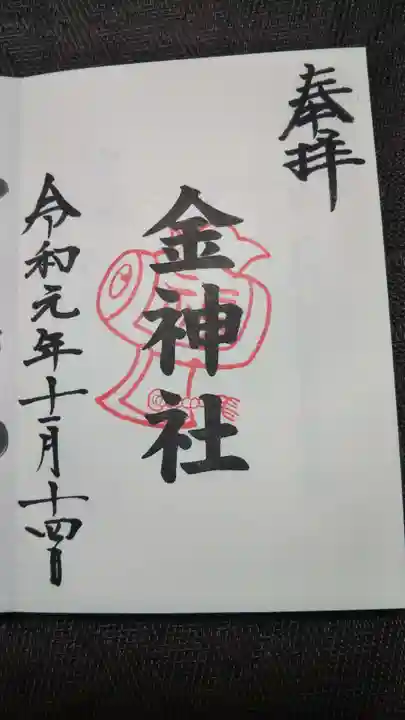 奉拝
金神社
令和元年十二月十四日